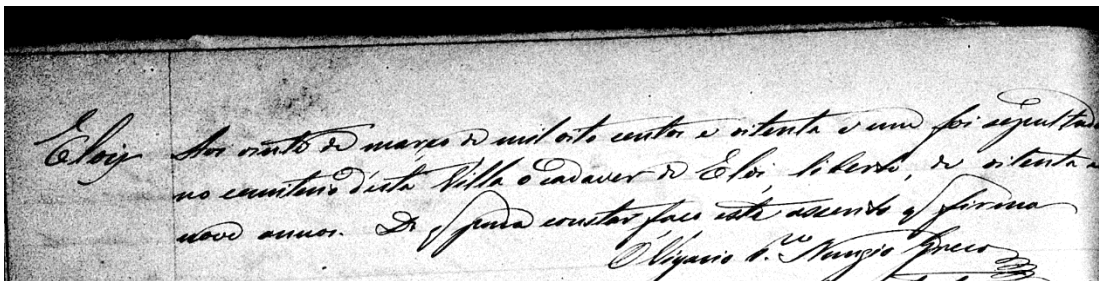 Eloy
Aos vinte de março de mil oito centos e oitenta e um foi sepultado
no cemiterio d'esta Villa o cadaver de Eloi, liberto, de oitenta e
nove annos. De q para constar faço este assento q firmo
O Vigario P.e Nunzio Greco